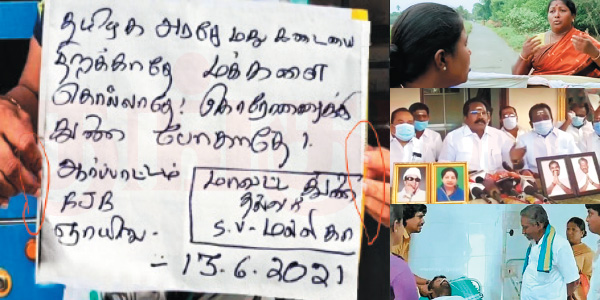 தமிழக அரசே மது கடையை
திறக்காதே மக்களை
கொல்லாதே! கொரோனாவுக்கு
துணை போகாதே!
ஆர்பாட்டம்
BJB
ஞாயிறு.
மாவட்ட துணை
தலைவர்
S.V. மல்லிகா
- 13.6.2021